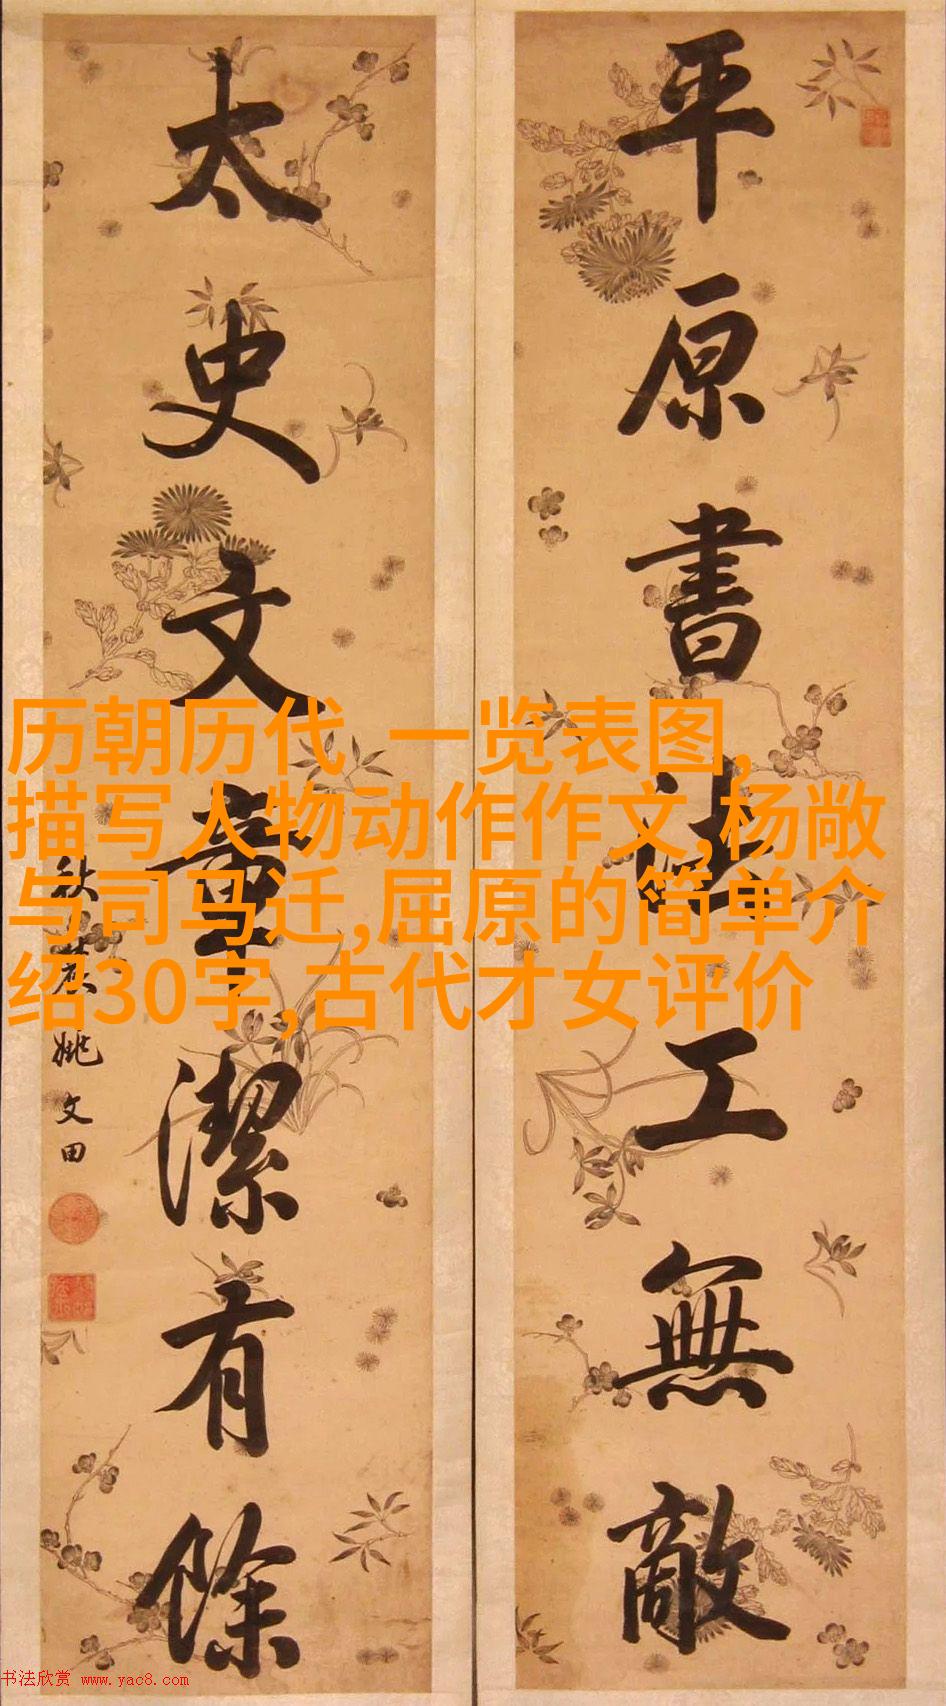 平原書法工無敵
太史文章潔有餘
秋農姚文田
历朝历代 一览表图,
描写人物动作作文,杨敞
与司马迁,屈原的简单介
绍30字,古代才女评价
书法欣赏 www.yac8.com